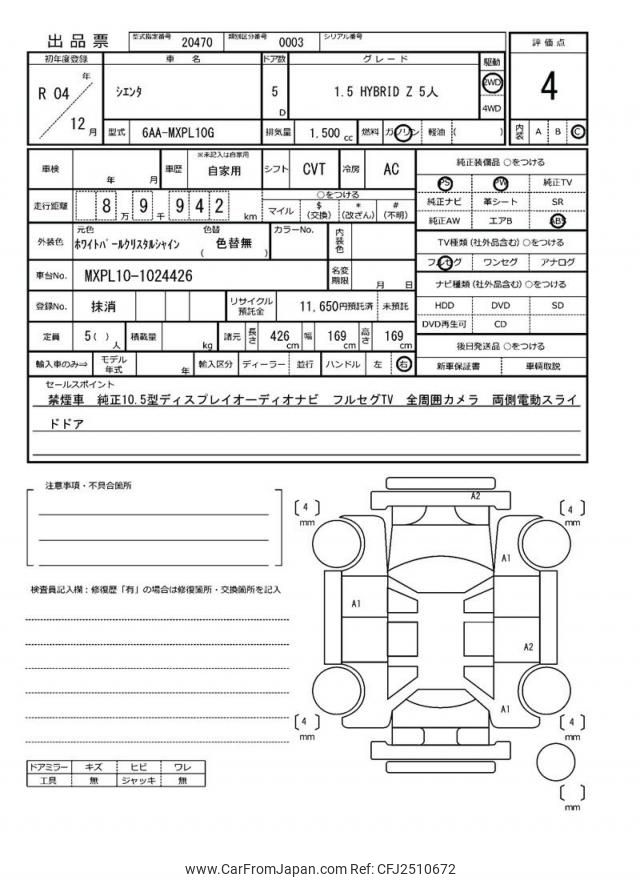 出品票 型式指定番号 20470 類別区分番号 0003 シリアル番号
評価点
4
内装 A B C
初年度登録 車名 ドア数 グレード 駆動
R 04 年 12 月 シエンタ 5 D 1.5 HYBRID Z 5人 2WD
4WD
型式 6AA-MXPL10G 排気量 1,500 cc 燃料 ガソリン 軽油 ( )
車検 年 月 車歴 ※未記入は自家用 自家用 シフト CVT 冷房 AC
走行距離 8 万 9 千 9 4 2 km ○をつける
マイル $ (交換) * (改ざん) # (不明)
外装色 元色 ホワイトパールクリスタルシャイン 色替 ( 色替無 ) カラーNo. 内装色
車台No. MXPL10-1024426 名変期限 月 日
登録No. 抹消 リサイクル預託金 11,650円預託済 未預託
定員 5( ) 人 積載量 kg 諸元 長さ 426 cm 幅 169 cm 高さ 169 cm
輸入車のみ⇒ モデル年式 年 輸入区分 ディーラー 並行 ハンドル 左 右
純正装備品 ○をつける
PS PW 純正TV
純正ナビ 革シート SR
純正AW エアB ABS
TV種類 (社外品含む) ○をつける
フルセグ ワンセグ アナログ
ナビ種類 (社外品含む) ○をつける
HDD DVD SD
DVD再生可 CD
後日発送品 ○をつける
新車保証書 車輌取説
セールスポイント
禁煙車 純正10.5型ディスプレイオーディオナビ フルセグTV 全周囲カメラ 両側電動スライ
ドドア
注意事項・不具合箇所
検査員記入欄：修復歴「有」の場合は修復箇所・交換箇所を記入
ドアミラー キズ ヒビ ワレ
工具 無 ジャッキ 無
A2
[ 4 ] mm
[ 4 ] mm
A1
A1
A2
A1
[ 4 ] mm
[ 4 ] mm
[ ] mm
www.CarFromJapan.com Ref: CFJ2510672